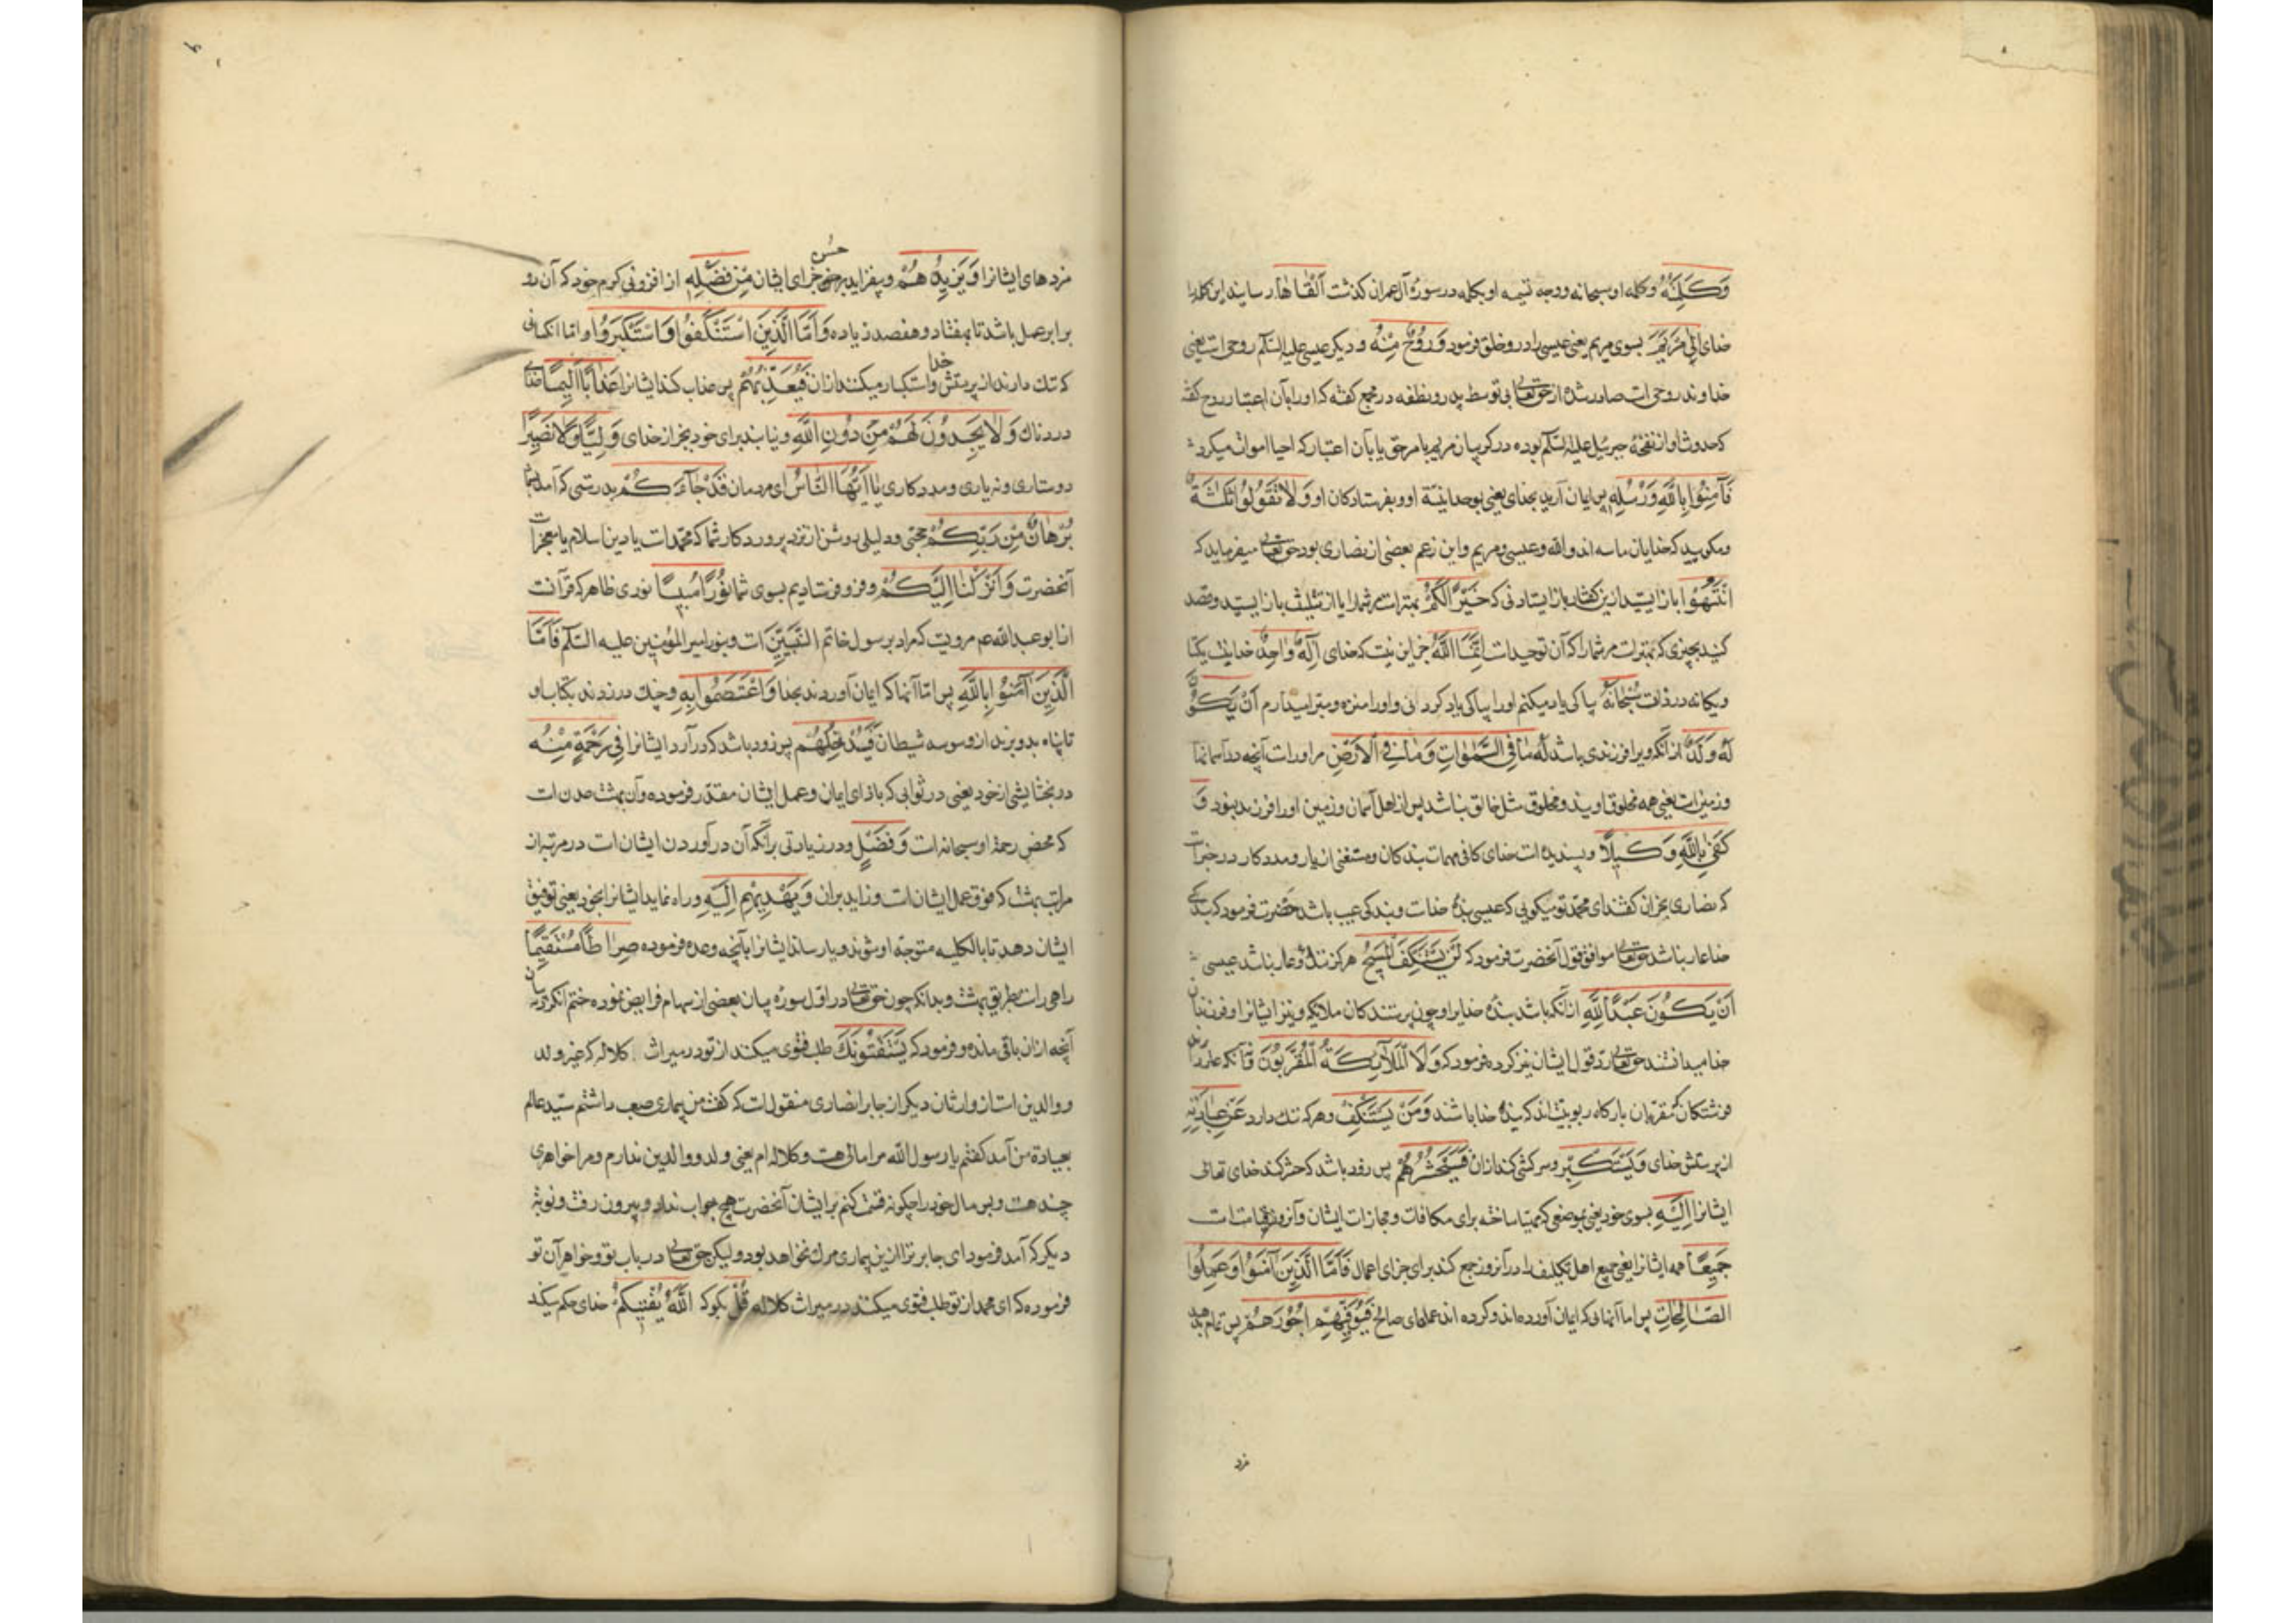 وَكَلِمَتُهُ وکلمه او سبحانه ووجه تسمیه او بکلمه در سورهٔ آل عمران کذشت اَلْقٰاهٰا رسانید این کلمه را
خدای اِلٰى مَرْيَمَ بسوی مریم یعنی عیسی را در و خلق فرمود وَرُوحٌ مِنْهُ و دیکر عیسی علیه السّلم روحی است یعنی
خداوند روحی است صادر شده از حق تعالی بی توسط پدر و نطفه در مجمع کفته که اورا بآن اعتبار روح کفته
که حدوث او از نفخهٔ جبرئیل علیه السّلم بوده در کریبان مریم بامر حق یا بآن اعتبار که احیا اموات میکرد
فَآمِنُوا بِاللّٰهِ وَرُسُلِهِ پس ایمان آرید بخدای یعنی بوحدانیّة او و بفرستادکان او وَلَا تَقُولُوا ثَلٰثَةٌ
ومکویید که خدایان ما سه اند والله وعیسی ومریم واین زعم بعضی از نصاری بود حق تعالی میفرماید که
اِنْتَهُوا باز ایستید ازین کفتار باز ایستادنی که خَيْرًا لَكُمْ بهتر است مر شما را یا از تثلیث باز ایستید وقصد
کنید بچیزی که بهتر است مر شما را که آن توحید است اِنَّمَا اللّٰهُ جز این نیست که خدای اِلٰهٌ وٰاحِدٌ خدائیست یکتا
ویکانه در ذات سُبْحٰانَهُ پاکی یاد میکنم اورا پاکی یاد کردنی واورا منزه ومبرا میدارم اَنْ يَكُونَ
لَهُ وَلَدٌ از آنکه ویرا فرزندی باشد لَهُ مٰا فِي السَّمٰوٰاتِ وَمٰا فِي الْاَرْضِ مر اوراست آنچه در آسمانها
وزمین است یعنی همه مخلوق اویند ومخلوق مثل خالق نباشد پس از اهل آسمان وزمین اورا فرزند نبود وَ
كَفٰى بِاللّٰهِ وَكِيلًا وپسندیده است خدای کافی مهمات بندکان ومستغنی از یار ومددکار در خبر است
که نصاری نجران کفتند ای محمد تو میکویی که عیسی بندهٔ خداست وبندکی عیب باشد حضرت فرمود که بندکی
خدا عار نباشد حق تعالی موافق قول آنحضرت فرمود که لَنْ يَسْتَنْكِفَ الْمَسِيحُ هرکز ننک وعار نباشد عیسی
اَنْ يَكُونَ عَبْدًا لِلّٰهِ از آنکه باشد بندهٔ خدایرا وچون پرستندکان ملایکه ونیز ایشانرا فرزندان
خدا میدانستند حق تعالی رد قول ایشان نیز کرده فرمود که وَلَا الْمَلٰٓئِكَةُ الْمُقَرَّبُونَ
فرشتکان مقربان بارکاه ربوبیت اند که بندهٔ خدا باشند وَمَنْ يَسْتَنْكِفْ وهر که ننک دارد عَنْ عِبٰادَتِهِ
از پرستش خدای وَيَسْتَكْبِرْ وسرکشی کند از ان فَسَيَحْشُرُهُمْ پس زود باشد که حشر کند خدای تعالی
ایشانرا اِلَيْهِ بسوی خود یعنی بموضعی که مهیّا ساخته برای مکافات ومجازات ایشان وآنروز قیامت است
جَمِيعًا همه ایشانرا یعنی جمیع اهل تکلیف را در آنروز جمع کند برای جزای اعمال فَاَمَّا الَّذِينَ آمَنُوا وَعَمِلُوا
الصّٰالِحٰاتِ پس اما آنهائی که ایمان آورده اند وکرده اند عملهای صالح فَيُوَفِّيهِمْ اُجُورَهُمْ پس تمام بدهد
مزد
مزدهای ایشانرا وَيَزِيدُهُمْ وبیفزاید بر جزای ایشان مِنْ فَضْلِهِ از افزونی کرم خود که آن ده
برابر عمل باشد تا بهفتاد وهفصد زیاده وَاَمَّا الَّذِينَ اسْتَنْكَفُوا وَاسْتَكْبَرُوا واما انکسانی
که ننک دارند از پرستش خدا واستکبار میکنند از ان فَيُعَذِّبُهُمْ پس عذاب کند ایشانرا عَذٰابًا اَلِيمًا عذابی
دردناک وَلٰا يَجِدُونَ لَهُمْ مِنْ دُونِ اللّٰهِ ونیابند برای خود بجز از خدای وَلِيًّا وَلٰا نَصِيرًا
دوستداری ونه یاری ومددکاری يٰا اَيُّهَا النّٰاسُ ای مردمان قَدْ جٰآءَكُمْ بدرستی که آمد بشما
بُرْهٰانٌ مِنْ رَبِّكُمْ حجتی ودلیلی روشن از نزد پروردکار شما که محمد است یا دین اسلام یا معجزات
آنحضرت وَاَنْزَلْنٰا اِلَيْكُمْ وفرو فرستادیم بسوی شما نُورًا مُبِينًا نوری ظاهر که قرآنست
از ابو عبد الله عم مرویست که مراد برسول خاتم النّبیّین است وبنور امیر المؤمنین علیه السّلم فَاَمَّا
الَّذِينَ آمَنُوا بِاللّٰهِ پس امّا آنها که ایمان آوردند بخدا وَاعْتَصَمُوا بِهِ وچنک در زدند بکتاب او
تا پناه بدو برند از وسوسه شیطان فَسَيُدْخِلُهُمْ پس زود باشد که در آرد ایشانرا فِي رَحْمَةٍ مِنْهُ
در بخشایشی از خود یعنی در ثوابی که بازای ایمان وعمل ایشان مقدّر فرموده وآن بهشت عدن است
که محض رحمة او سبحانه است وَفَضْلٍ ودر زیادتی بر آنکه آن در آوردن ایشان است در مرتبه از
مراتب بهشت که فوق عمل ایشان است وزاید بران وَيَهْدِيهِمْ اِلَيْهِ وراه نماید ایشانرا بخود یعنی توفیق
ایشان دهد تا بالکلیه متوجّه او شوند ویا رساند ایشانرا بآنچه وعده فرموده صِرٰاطًا مُسْتَقِيمًا
راهی راست بطریق بهشت وبدانکه چون حق تعالی در اوّل سوره بیان بعضی از سهام فرایض نموده ختم
آنچه از ان باقی مانده وفرمود که يَسْتَفْتُونَكَ طلب فتوی میکنند از تو در میراث کلاله که غیر ولد
ووالدین است از وارثان دیکر از جابر انصاری منقول است که کفت من بیماری صعب داشتم سیّد عالم
بعیادة من آمد کفتم یا رسول اللّه مرا مالی هست وکلاله ام یعنی ولد ووالدین ندارم ومرا خواهری
چند هست وبس مال خود را چکونه قسمت کنم بر ایشان آنحضرت هیچ جواب نداد وبیرون رفت ونوبتهٔ
دیکر که آمد فرمود ای جابر ترا ازین بیماری مرک نخواهد بود ولیکن حق تعالی در باب تو وخواهرآن تو
فرموده که ای محمد از تو طلب فتوی میکنند در میراث کلاله قُلْ بکو که اَللّٰهُ يُفْتِيكُمْ خدای حکم میکند